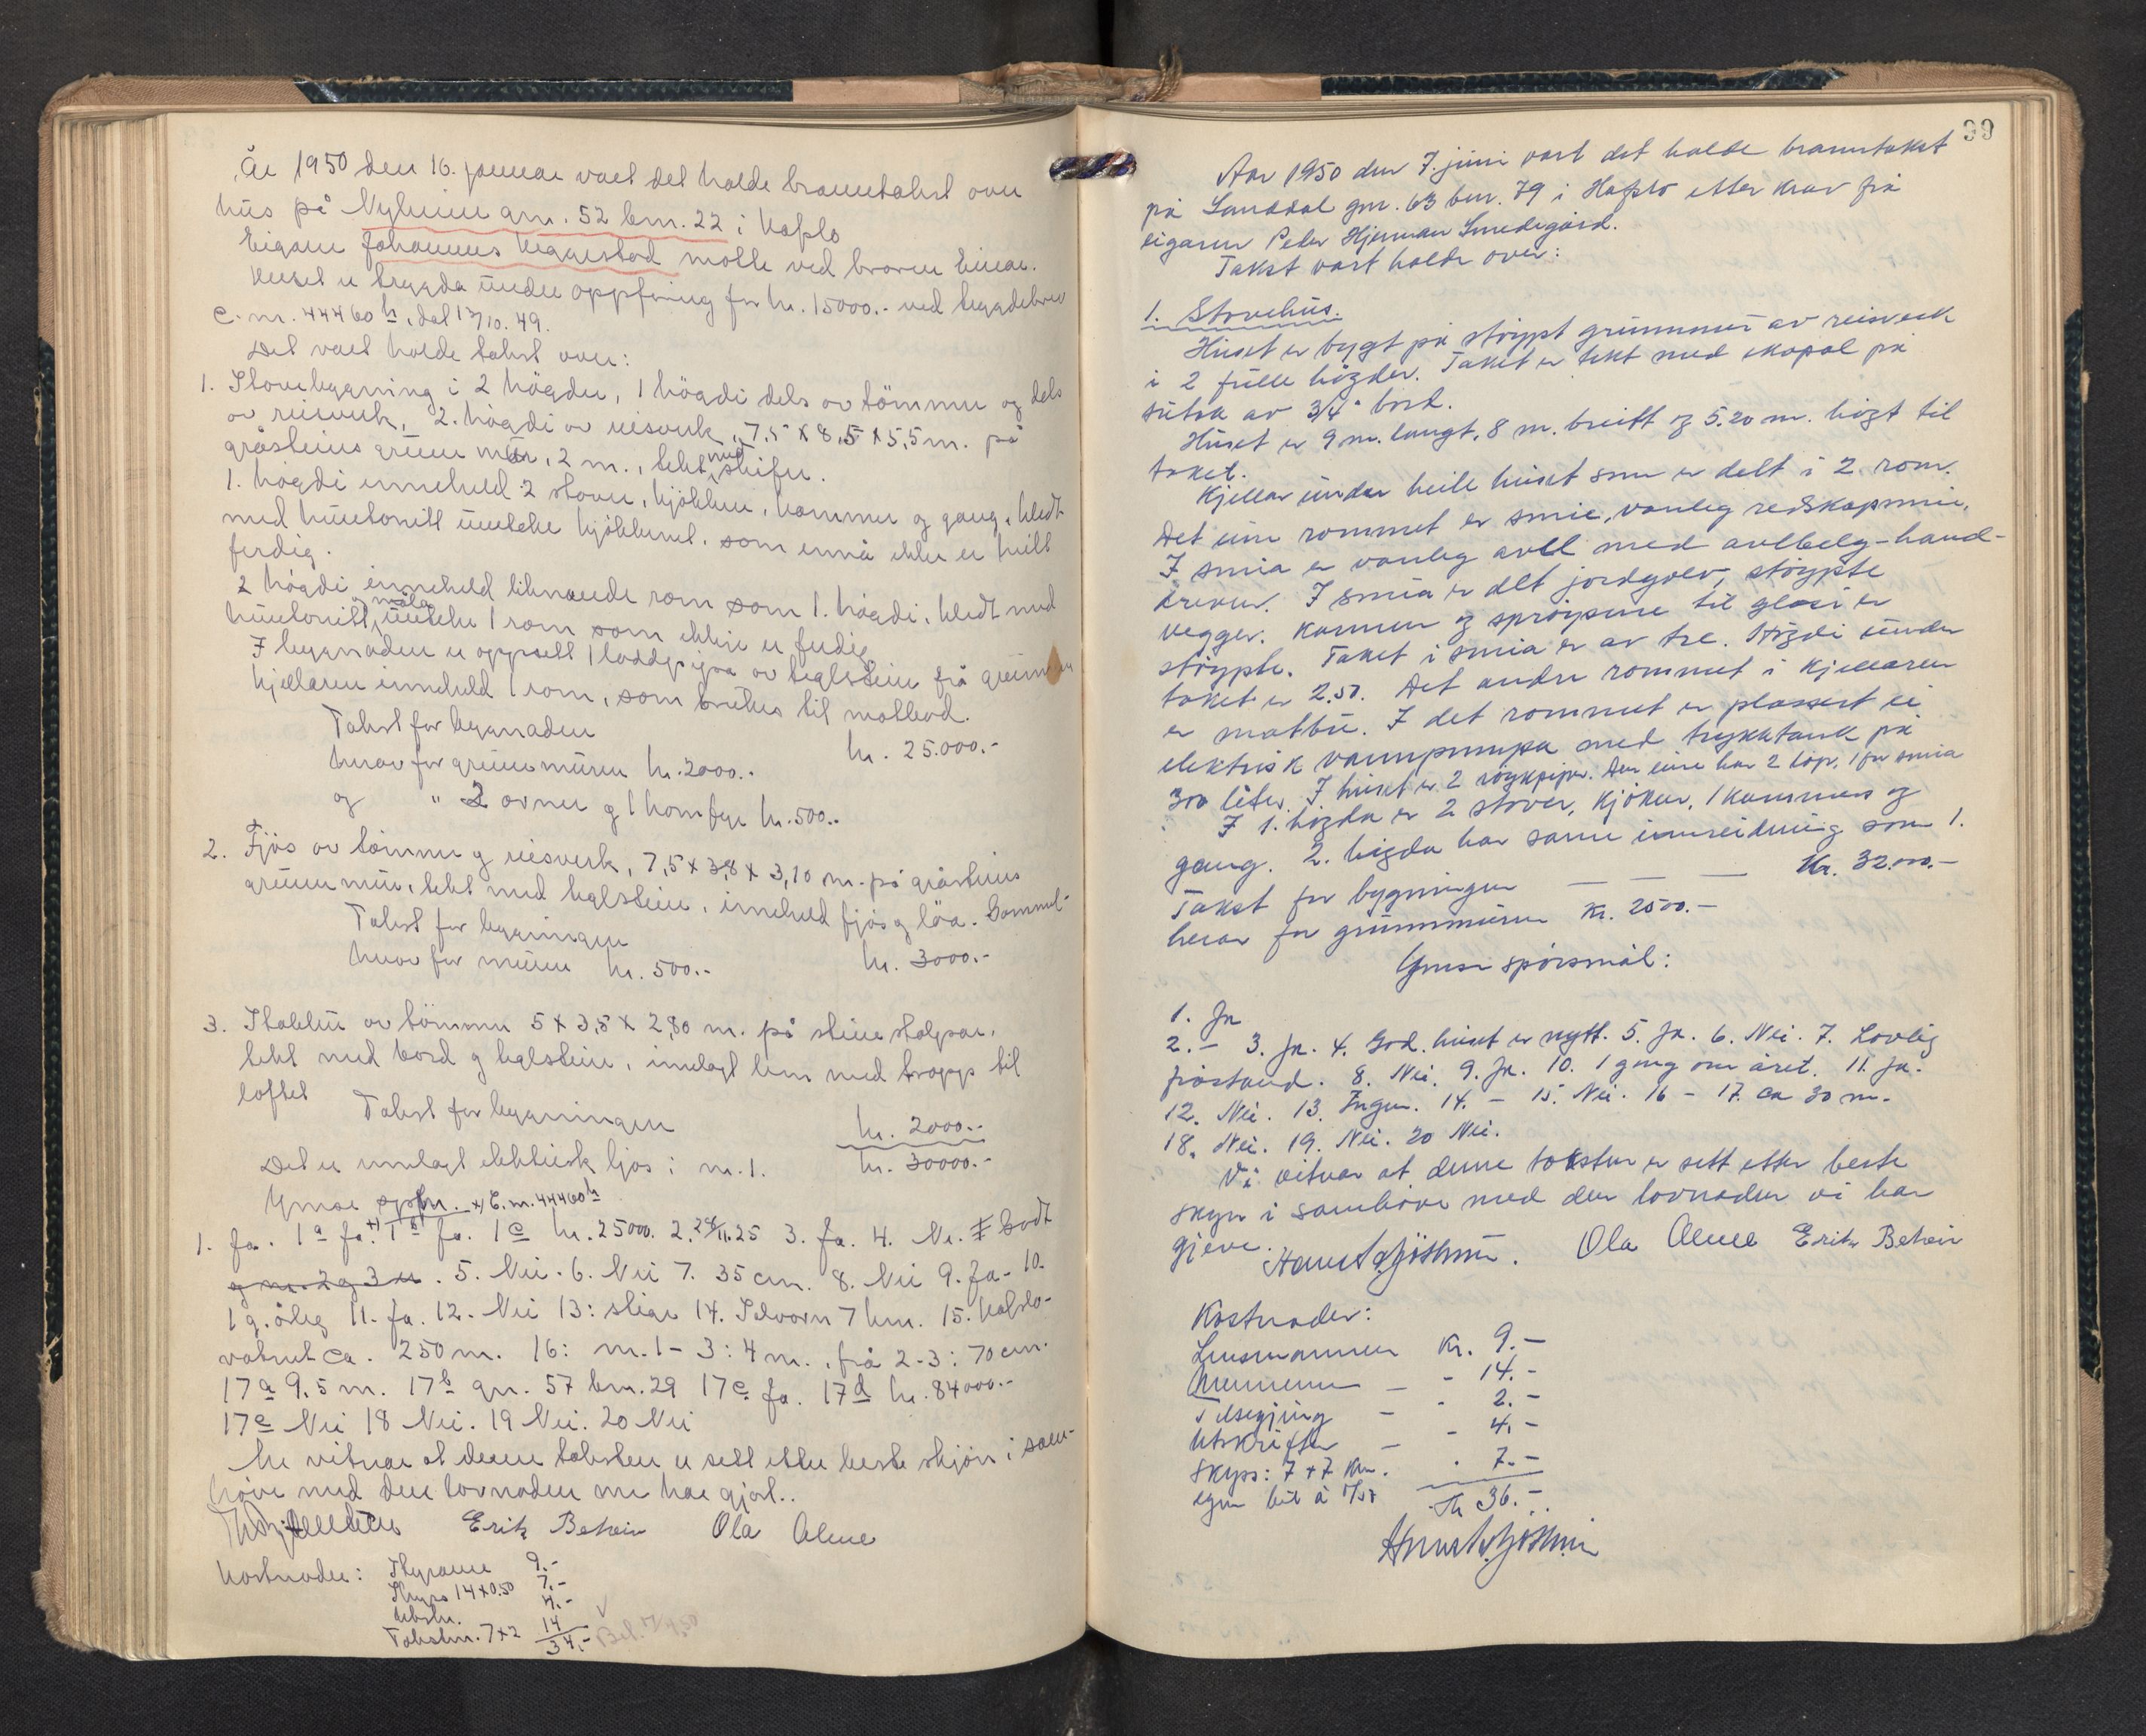 År 1950 den 16. januar vart det halde branntakst over
hus på Nyheim gnr. 52 bnr. 22 i Hafslo
Eigaren Johannes Heggestad møtte ved broren Einar.
Huset er trygda under oppföring for kr. 15000.- ved trygdebrev
C. nr. 44460 h, dat 12/10. 49.
Det vart halde takst over:
1. Stovebygning i 2 högder, 1 högdi dels av tömmer og dels
av reisverk, 2. högdi av reisverk, 7,5 x 8,5 x 5,5 m. på
gråsteins grunnmur, 2 m., tekt med skifer.
1. högdi inneheld 2 stover, kjökken, kammer og gang, kledt
med huntonitt unnteke kjökkenet, som ennå ikke er heilt
ferdig.
2 högdi inneheld liknande rom som 1. högdi, kledt med
huntonitt, og måla unnteke 1 rom som ikkje er ferdig.
I bygnaden er oppsett 1 loddpipa av teglstein frå grunnen
Kjellaren inneheld 1 rom, som brukes til matbod.
Takst for bygnaden kr. 25.000.-
herav for grunnmuren kr. 2000.-
og " 2 ovner g 1 komfyr kr. 500.-
2. Fjös av tömmer g reisverk, 7,5 x 3,8 x 3,10 m. på gråsteins
grunnmur, tekt med teglstein, inneheld fjös g löa. Gammel.
Takst for bygningen kr. 3000.-
herav for muren kr. 500.-
3. Stabbur av tömmer 5 x 3,5 x 2,80 m. på steinstolpar,
tekt med bord g teglstein, innlagt lem med tropp til
loftet
Takst for bygningen kr. 2000.-
kr. 30000.-
Det er innlagt elektrisk ljos i nr. 1.
Ymse spm. x) C. nr. 44460 h
1. Ja. 1a Ja. x) 1b Ja. 1c kr. 25000. 2. 24/11.25 3. Ja. 4. Nr. 1 Godt
g nr. 2 g 3 u. 5. Nei. 6. Nei 7. 35 cm. 8. Nei 9. Ja - 10.
1 g. årleg 11. Ja. 12. Nei 13: stige 14. Solvorn 7 km. 15. Hafslo-
vatnet ca. 250 m. 16: nr. 1 - 3: 4 m., frå 2-3: 70 cm.
17a 9,5 m. 17b gnr. 57 bnr. 29 17c Ja. 17d kr. 84000.-
17e Nei 18 Nei. 19 Nei. 20 Nei
Me vitnar at denne taksten er sett etter beste skjön i sam-
höve med den lovnaden me har gjort.
Erik Beheim Ola Alme
Kostnader: Styraren 9.-
Skyss 14 x 0.50 7.-
Utskr. 4.-
Takstm. 7 x 2 14
34.-
99
Aar 1950 den 7. juni vart det halde branntakst
på Sanddal gnr. 63 bnr. 79 i Hafslo etter krav frå
eigaren Peder Hjerman Smedegård.
Takst vart halde over:
1. Stovehus.
Huset er bygt på stöypt grunnmur av reisverk
i 2 fulle högder. Taket er tekt med skopal på
sutak av 3/4" bord.
Huset er 9 m. langt, 8 m. breitt og 5.20 m. högt til
taket.
Kjellar under heile huset som er delt i 2 rom.
Det eine rommet er smie, vanleg redskapsmie.
I smia er vanleg avl med avlbelg - hand-
dreven. I smia er det jordgolv, stöypte
vegger. Karmen og sprossene til glasi er
stöypte. Taket i smia er av tre. Högdi under
taket er 2.50. Det andre rommet i kjellaren
er matbu. I det rommet er plassert ei
elektrisk vannpumpa med trykktank på
300 liter. I huset er 2 röykpiper. Den eine har 2 löp, 1 for smia
I 1. högda er 2 stover, kjöken, 1 kammers og
gang. 2. högda har same innreidning som 1.
Takst for bygningen — — — Kr. 32.000.-
herav for grunnmuren Kr. 2500.-
Ymse spörsmål:
1. Ja
2. - 3. Ja. 4. God. huset er nytt. 5. Ja. 6. Nei. 7. Lovleg
fråstand. 8. Nei. 9. Ja. 10. 1 gong om året. 11. Ja.
12. Nei. 13. Ingen. 14. - 15. Nei. 16 - 17. ca 30 m.
18. Nei. 19. Nei. 20 Nei.
Vi vitnar at denne taksten er sett etter beste
skyn i samhöve med den lovnaden vi har
gjeve.
Ola Alme Erik Beheim
Kostnader:
Lensmannen Kr. 9.-
Mennene - - 14.-
Tilseging - - 2.-
Utskrifter - - 4.-
Skyss: 7 + 7 km. - 7.-
egen bil à
Kr 36.-